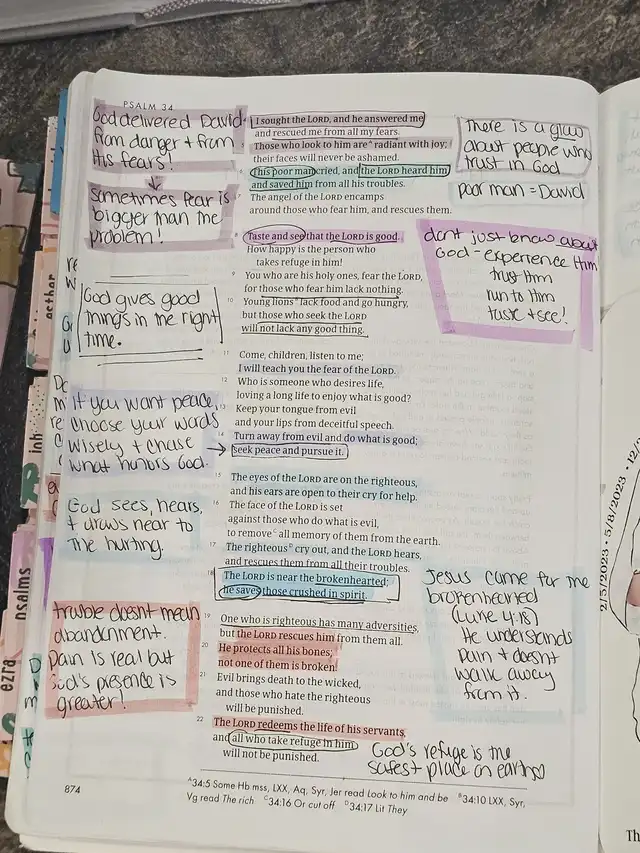 PSALM 34
God delivered David
from danger + from
His fears!
sometimes fear is
bigger than the
problem!
God gives good
things in the right
time.
If you want peace,
choose your words
wisely + chase
what honors God.
God sees, hears,
+ draws near to
the hurting.
trouble doesnt mean
abandonment.
Pain is real but
God's presence is
greater!
I sought the LORD, and he answered me
and rescued me from all my fears.
5 Those who look to him are^A radiant with joy;
their faces will never be ashamed.
This poor man cried, and the LORD heard him
and saved him from all his troubles.
7 The angel of the LORD encamps
around those who fear him, and rescues them.
8 Taste and see that the LORD is good.
How happy is the person who
takes refuge in him!
9 You who are his holy ones, fear the LORD,
for those who fear him lack nothing.
10 Young lions^B lack food and go hungry,
but those who seek the LORD
will not lack any good thing.
11 Come, children, listen to me;
I will teach you the fear of the LORD.
12 Who is someone who desires life,
loving a long life to enjoy what is good?
13 Keep your tongue from evil
and your lips from deceitful speech.
14 Turn away from evil and do what is good;
seek peace and pursue it.
15 The eyes of the LORD are on the righteous,
and his ears are open to their cry for help.
16 The face of the LORD is set
against those who do what is evil,
to remove^C all memory of them from the earth.
17 The righteous^D cry out, and the LORD hears,
and rescues them from all their troubles.
18 The LORD is near the brokenhearted;
he saves those crushed in spirit.
19 One who is righteous has many adversities,
but the LORD rescues him from them all.
20 He protects all his bones;
not one of them is broken.
21 Evil brings death to the wicked,
and those who hate the righteous
will be punished.
22 The LORD redeems the life of his servants,
and all who take refuge in him
will not be punished.
There is a glow
about people who
trust in God
poor man = David
dont just know about
God - experience Him
trust Him
run to Him
taste + see!
Jesus came for the
brokenhearted
(Luke 4:18)
He understands
pain + doesnt
walk away
from it.
God's refuge is the
safest place on earth♡
874
^A34:5 Some Hb mss, LXX, Aq, Syr, Jer read Look to him and be ^B34:10 LXX, Syr,
Vg read The rich ^C34:16 Or cut off ^D34:17 Lit They
esther
job
psalms
ezra
2/5/2023 • 5/8/2023 • 12/
Th